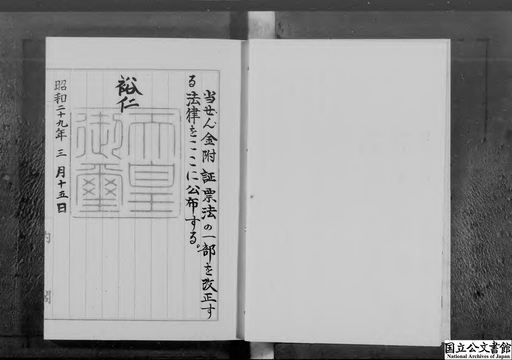 当せん金附証票法の一部を改正す
る法律をここに公布する。
裕仁
天皇
御璽
昭和二十九年三月十五日
内閣
国立公文書館
National Archives of Japan